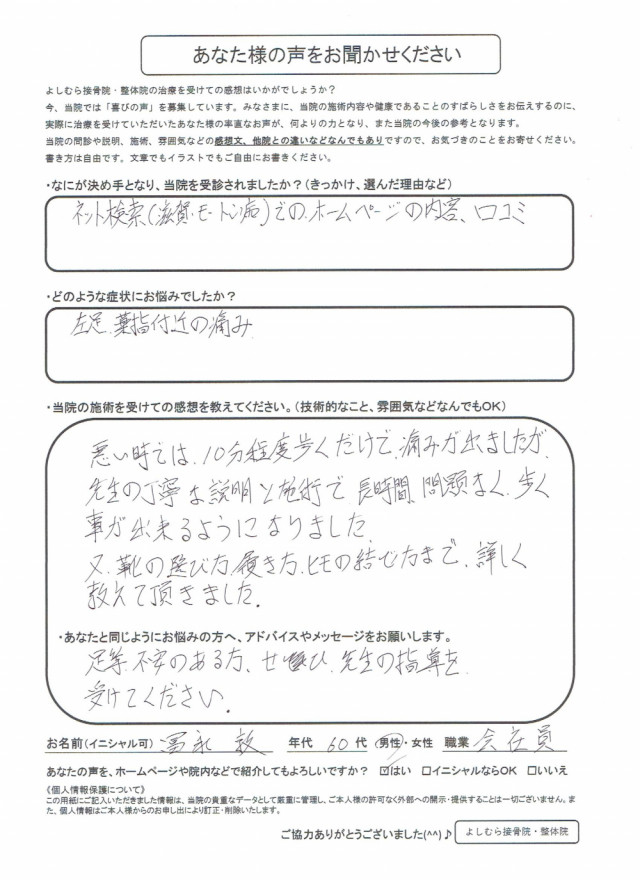 あなた様の声をお聞かせください
よしむら接骨院・整体院の治療を受けての感想はいかがでしょうか？
今、当院では「喜びの声」を募集しています。みなさまに、当院の施術内容や健康であることのすばらしさをお伝えするのに、
実際に治療を受けていただいたあなた様の率直なお声が、何よりの力となり、また当院の今後の参考となります。
当院の問診や説明、施術、雰囲気などの感想文、他院との違いなどなんでもありですので、お気づきのことをお寄せください。
書き方は自由です。文章でもイラストでもご自由にお書きください。
・なにが決め手となり、当院を受診されましたか？（きっかけ、選んだ理由など）
ネット検索（滋賀・モートン病）での、ホームページの内容、口コミ
・どのような症状にお悩みでしたか？
左足、薬指付近の痛み
・当院の施術を受けての感想を教えてください。（技術的なこと、雰囲気などなんでもOK）
悪い時では、10分程度歩くだけで、痛みが出ましたが、
先生の丁寧な説明と施術で長時間、問題なく、歩く
事が出来るようになりました。
又、靴の選び方、履き方、ヒモの結び方まで、詳しく
教えて頂きました。
・あなたと同じようにお悩みの方へ、アドバイスやメッセージをお願いします。
足等、不安のある方、ぜひ、先生の指導を
受けてください。
お名前（イニシャル可） 冨永 敦 年代 60 代 男性・女性 職業 会社員
あなたの声を、ホームページや院内などで紹介してもよろしいですか？ ☑はい □イニシャルならOK □いいえ
《個人情報保護について》
この用紙にご記入いただきました情報は、当院の貴重なデータとして厳重に管理し、ご本人様の許可なく外部への開示・提供することは一切ございません。ま
た、個人情報はご本人様からのお申し出により訂正・削除いたします。
ご協力ありがとうございました(^^)♪ よしむら接骨院・整体院